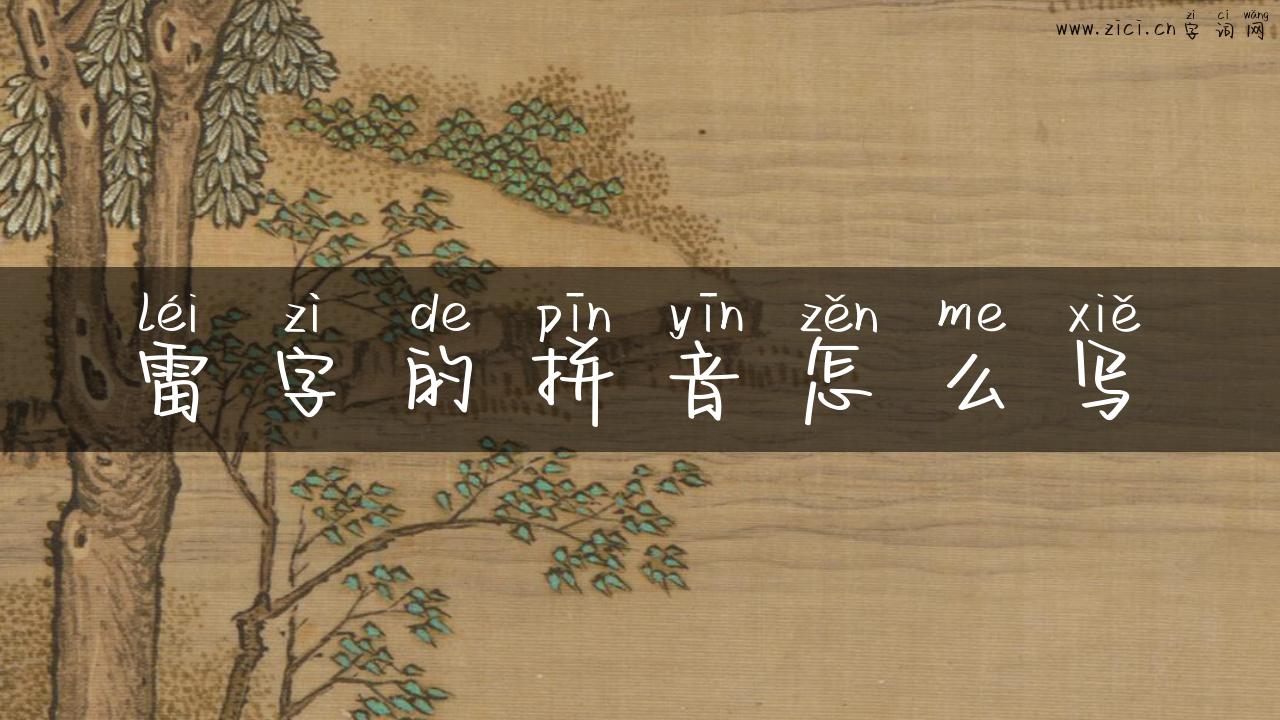 zì cí wǎng
www.zici.cn 字词网
léi zì de pīn yīn zěn me xiě
雷字的拼音怎么写